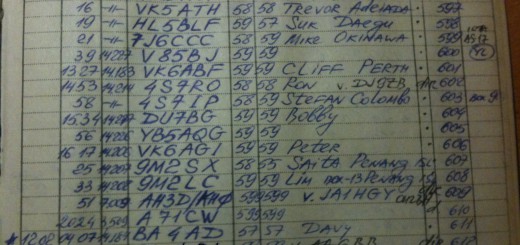 16 -"- VK5ATH 58 58 Trevor Adelaida 597
19 -"- HL5BLF 59 57 Suk Daegu 598
21 -"- 7J6CCC 58 58 Mike OKINAWA 599
39 14227 V85BJ 59 59 600
1327 14183 VK6ABF 59 59 CLIFF PERTH 601
1453 14214 4S7RO 58 58 Ron v. DJ9ZB 602
58 -"- 4S7IP 58 59 STEFAN Colombo 603 box 9
1534 DU7BG 59 59 Bobby 604
56 14226 YB5AQG 59 59 605
1617 14206 VK6AGI 59 59 Peter 606
25 14207 9M2SX 58 55 Saita PENANG ISL 607
33 9M2LC 59 59 Lim box-13 PENANG 608
51 7009 AH3D/KH 599 599 v. JA1HGY 609
2024 A71CW 599 599 610
12.02 0407 BA4AD 57 57 Davy 611